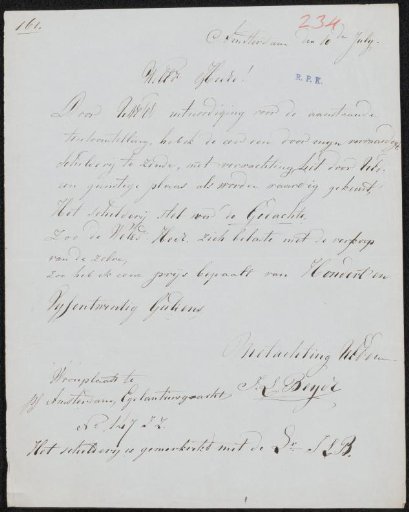 161.
234
Amsterdam den 10 de July.
R.P.K.
WelEd Heere!
Door UwEd uitnoodiging voor de aanstaande
tentoonstelling, heb ik de eer een door mijn vervaardigd
schilderij te zende, met verwachting het door Uwe
een gunstige plaas als worden waardig gekeurt,
Het schilderij stel voor de Gedachte
Zoo de WelEd Heer zich belaste met de verkoop
van de zelve,
zoo heb ik eene prijs bepaalt van Hondert en
Vyfentwintig Guldens
Met achting UwEd
J. L. Beyer
Woonplaats te
Amsterdam, Egelantiersgracht
No 147 ZZ.
Het schilderij is gemerkerkt met de Lr J L B.